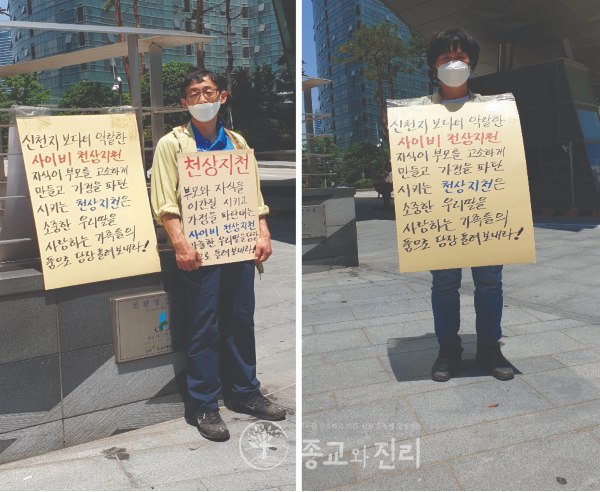 신천지 보다더 악랄한
사이비 천상지천
자식이 부모를 고소하게
만들고 가정을 파탄
시키는 천상지천은
소중한 우리딸을
사랑하는 가족들의
품으로 당장 돌려 보내라!
천상지천
부모와 자식을
이간질 시키고
가정을 파탄내는
사이비 천상지천
우리딸을 당장
으로 돌려 보내라!
신천지 보다더 악랄한
사이비 천상지천
자식이 부모를 고소하게
만들고 가정을 파탄
시키는 천상지천은
소중한 우리딸을
사랑하는 가족들의
품으로 당장 돌려 보내라!
종교와 진리